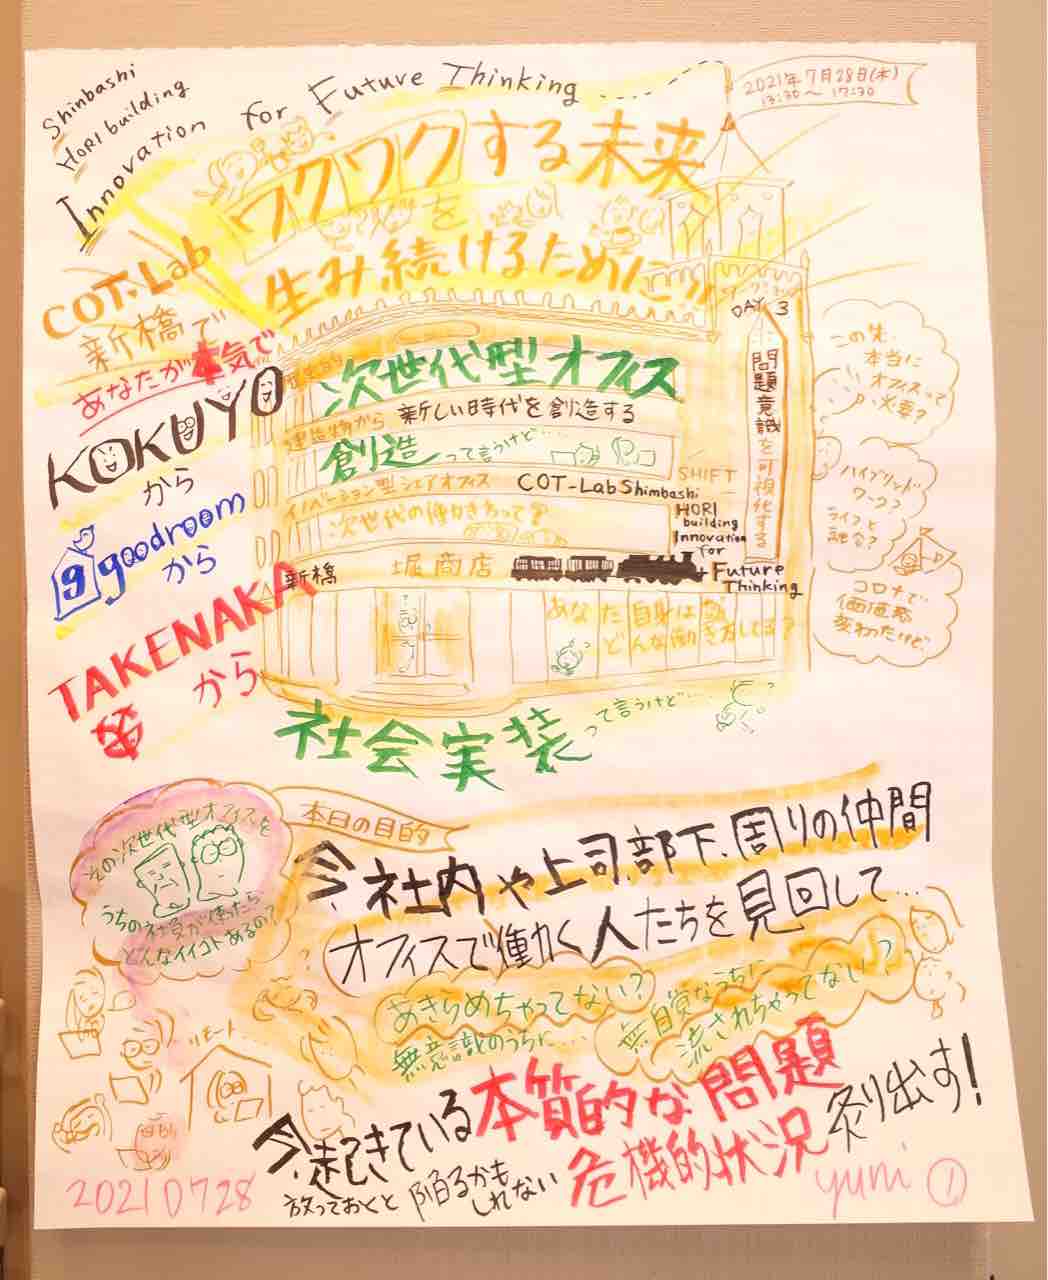 Shinbashi
HORI building
Innovation for Future Thinking
2021年7月28日(水)
13:30～17:30
ワクワクする未来
を
生み続けるために
COT-Lab
新橋で
あなたが本気で
KOKUYO
から
g goodroom
から
TAKENAKA
から
DAY 3
問題意識を可視化する
次世代型オフィス
建造物から 新しい時代を創造する
創造って言うけど…
イノベーション型シェアオフィス
COT-LabShimbashi
SHIFT
次世代の働き方って?
HORI
building
Innovation
for
Future
Thinking
新橋 堀商店
あなた自身は
どんな働き方してる?
社会実装って言うけど…
この先、
本当に
オフィスって
必要?
ハイブリッド
ワーク?
ライフと
融合?
コロナで
価値感
変わったけど…
その次世代型オフィスを
うちの社員が使ったら
どんなイイコトあるの?
本日の目的
今、社内や上司、部下、周りの仲間
オフィスで働く人たちを見回して…
あきらめちゃってない?
無意識のうちに…
無自覚なうちに
流されちゃってない?
リモート
今、起きている本質的な問題
放っておくと陥るかも
しれない
危機的状況 炙り出す!
20210728
yumi ①